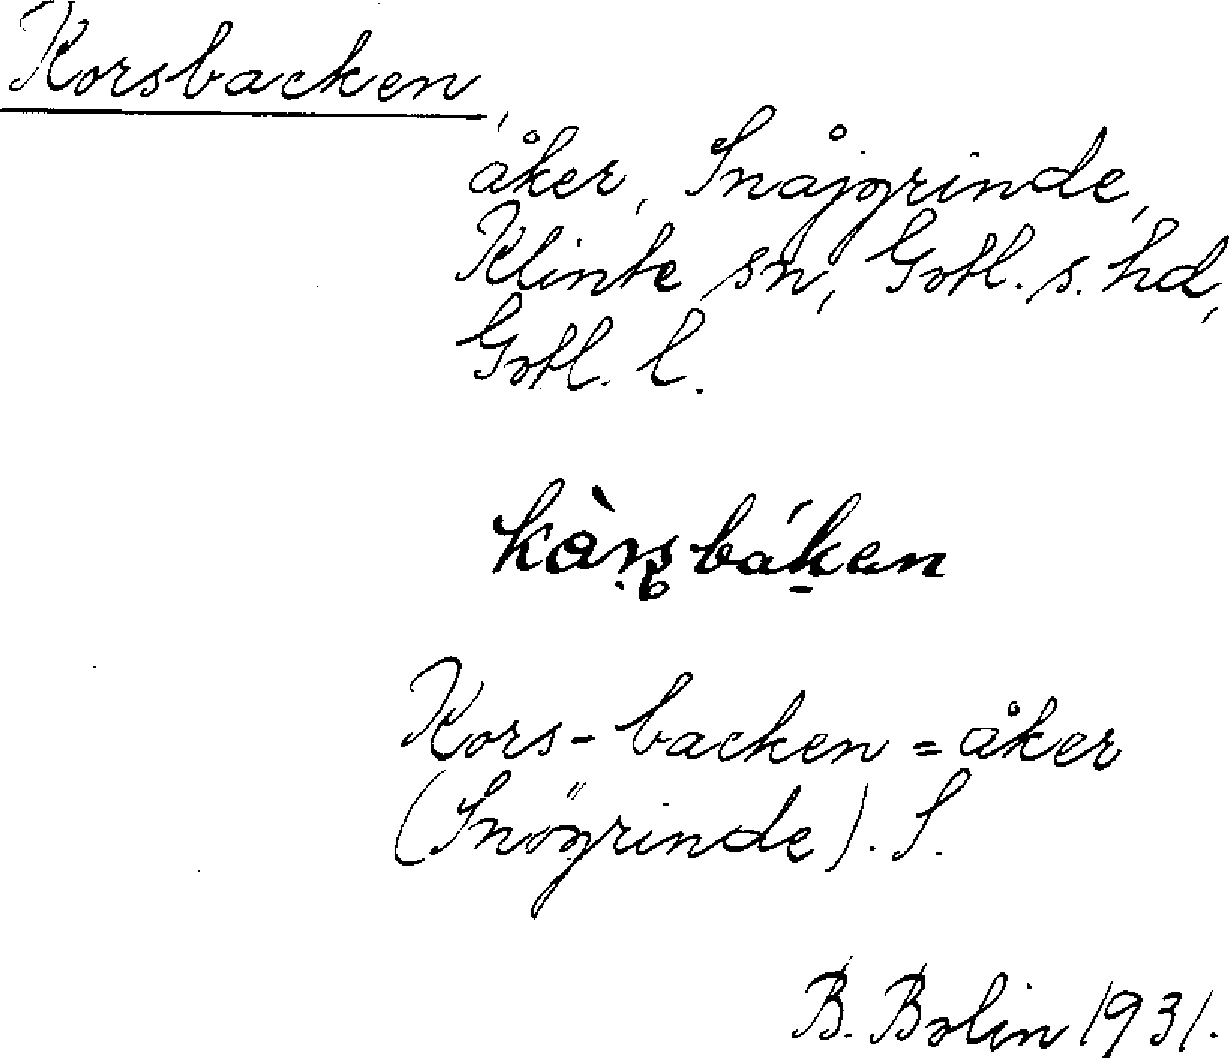 Korsbacken,
åker, Snåjgrinde,
Klinte sn, Gotl. s. hd,
Gotl. l.
Kors-backen = åker
(Snögrinde). S.
B. Bolin 1931.